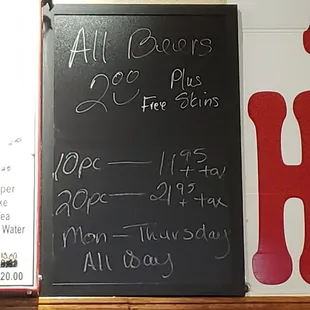 All Beers
2.00 Plus
Free Skins
10pc — 11.95
+ tax
20pc — 21.95
+ tax
Mon - Thursday
All Day
Water
20.00
H